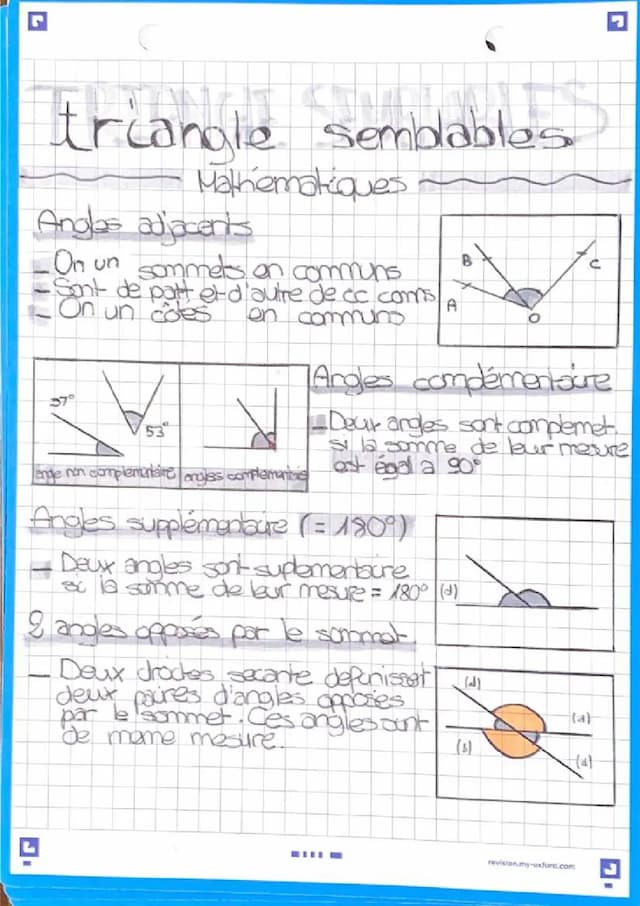 triangle semblables
Mathématiques
Angles adjacents
- On un sommets en communs
- Sont de part et d'autre de ce coms
- On un côtés en communs
B
C
A
O
37°
53°
angle non complementaire
angles complementaire
Angles complémentaire
- Deux angles sont complemet.
si la somme de leur mesure
est égal à 90°
Angles supplémentaire (= 180°)
- Deux angles sont suplementaire
si la somme de leur mesure = 180°
(d)
2 angles opposés par le sommet.
- Deux droites secante definisset
deux paires d'angles opposées
par le sommet. Ces angles sont
de meme mesure.
(d)
(d)
(d)
revision.my-oxford.com